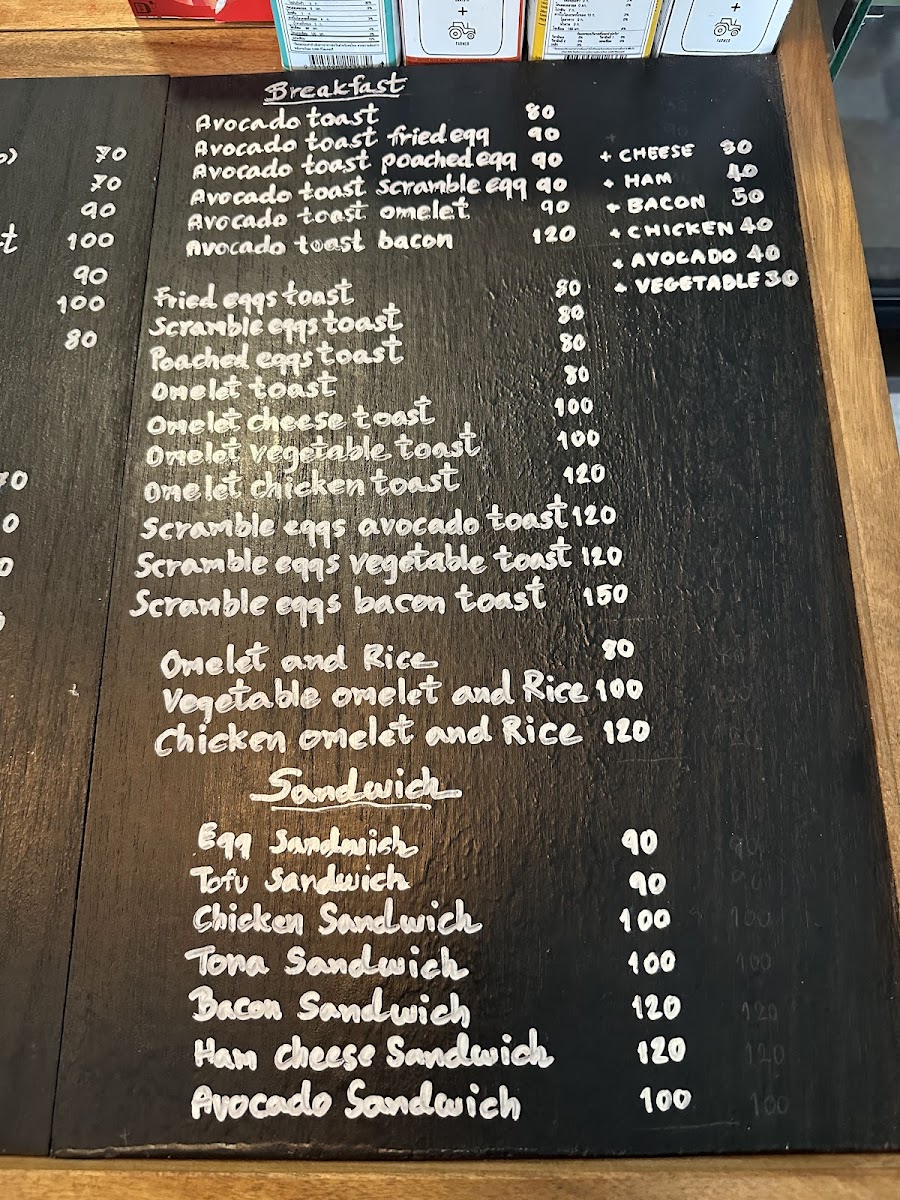 +
FARMER
+
FARMER
70
70
90
100
90
100
80
70
Breakfast
Avocado toast 80
Avocado toast fried egg 90
Avocado toast poached egg 90
Avocado toast scramble egg 90
Avocado toast omelet 90
Avocado toast bacon 120
+ CHEESE 30
+ HAM 40
+ BACON 50
+ CHICKEN 40
+ AVOCADO 40
+ VEGETABLE 30
Fried eggs toast 80
Scramble eggs toast 80
Poached eggs toast 80
Omelet toast 80
Omelet cheese toast 100
Omelet vegetable toast 100
Omelet chicken toast 120
Scramble eggs avocado toast 120
Scramble eggs vegetable toast 120
Scramble eggs bacon toast 150
Omelet and Rice 80
Vegetable omelet and Rice 100
Chicken omelet and Rice 120
Sandwich
Egg Sandwich 90
Tofu Sandwich 90
Chicken Sandwich 100
Tona Sandwich 100
Bacon Sandwich 120
Ham cheese Sandwich 120
Avocado Sandwich 100